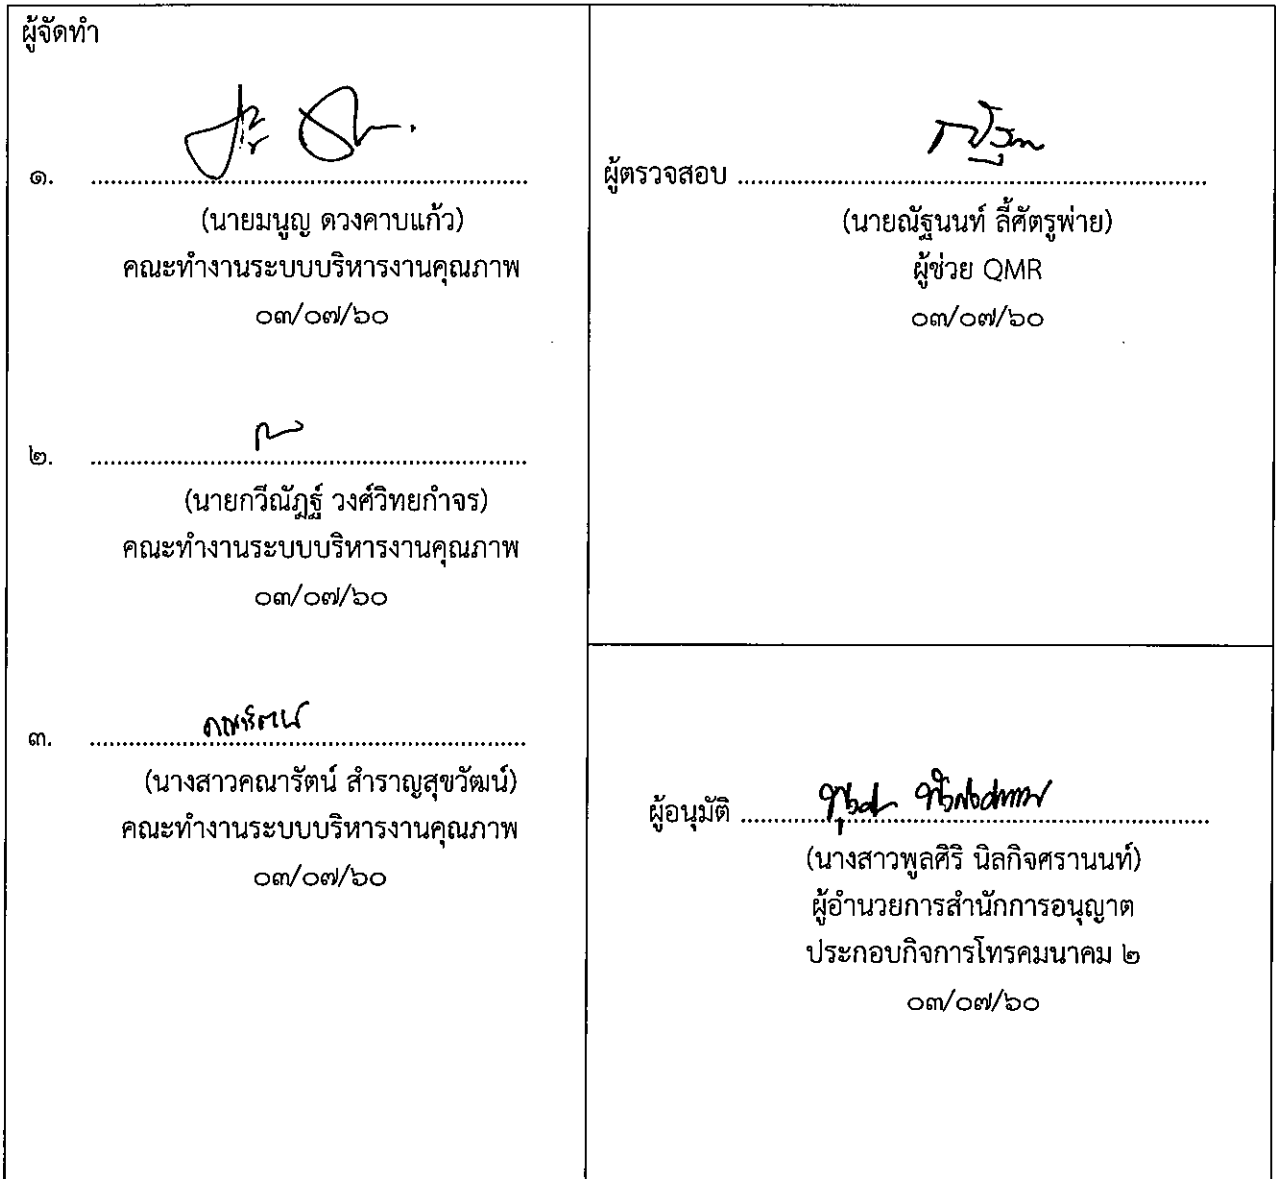 ผู้จัดทำ
๑. ........................................
(นายมนูญ ดวงคาบแก้ว)
คณะทำงานระบบบริหารงานคุณภาพ
๐๓/๐๗/๖๐
๒. ........................................
(นายกวีณัฏฐ์ วงศ์วิทยกำจร)
คณะทำงานระบบบริหารงานคุณภาพ
๐๓/๐๗/๖๐
๓. ........................................
(นางสาวคณารัตน์ สำราญสุขวัฒน์)
คณะทำงานระบบบริหารงานคุณภาพ
๐๓/๐๗/๖๐
ผู้ตรวจสอบ ........................................
(นายณัฐนนท์ ลี้ศัตรูพ่าย)
ผู้ช่วย QMR
๐๓/๐๗/๖๐
ผู้อนุมัติ ........................................
(นางสาวพูลศิริ นิลกิจศรานนท์)
ผู้อำนวยการสำนักการอนุญาต
ประกอบกิจการโทรคมนาคม ๒
๐๓/๐๗/๖๐